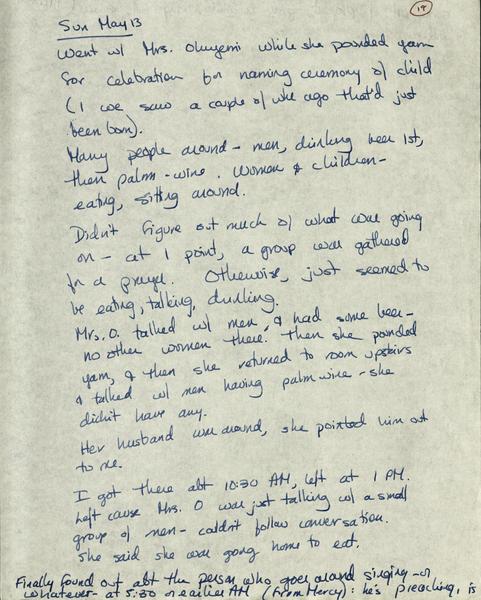 19
Sun May 13
Went w/ Mrs. Oluyemi while she pounded yam
for celebration for naming ceremony of child
(1 we saw a couple of wks ago that'd just
been born).
Many people around - men, drinking beer 1st,
then palm-wine. Women & children -
eating, sitting around.
Didn't figure out much of what was going
on - at 1 point, a group was gathered
for a prayer. Otherwise, just seemed to
be eating, talking, drinking.
Mrs. O. talked w/ men, & had some beer -
no other women there. Then she pounded
yam, & then she returned to room upstairs
& talked w/ men having palm wine - she
didn't have any.
Her husband was around, she pointed him out
to me.
I got there abt 10:30 AM, left at 1 PM.
Left cause Mrs. O was just talking w/ a small
group of men - couldn't follow conversation.
She said she was going home to eat.
Finally found out abt the person who goes around singing - or
whatever - at 5:30 or earlier AM (from Mercy): he's preaching, is